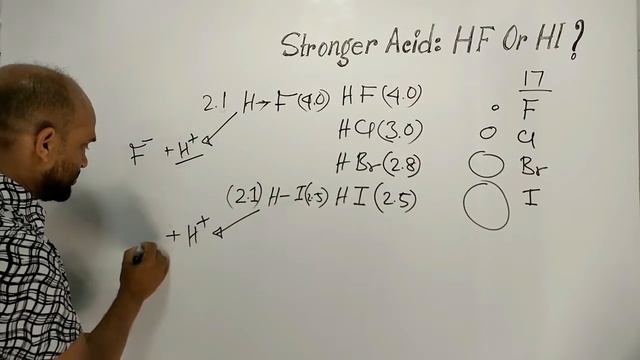 Stronger Acid: HF Or HI?
17
2.1 H→F(4.0) HF(4.0) F
F⁻ + H⁺ HCl(3.0) Cl
HBr(2.8) Br
(2.1) H-I(2.5) HI(2.5) I
+ H⁺